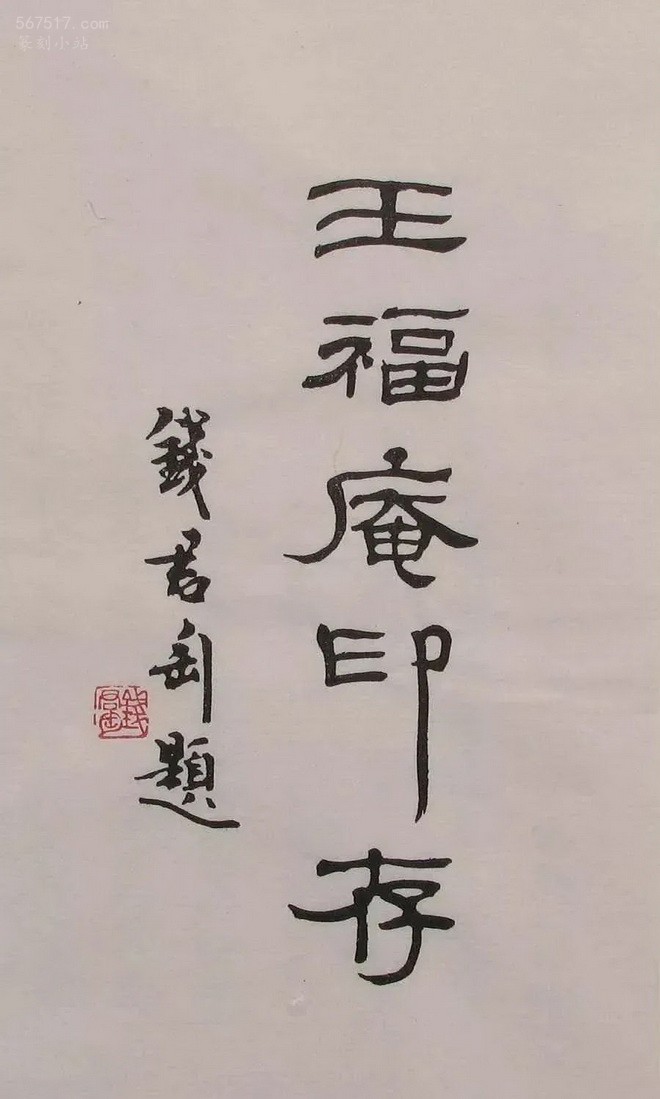 567517.com
篆刻小站
王福庵印存
錢君匋題